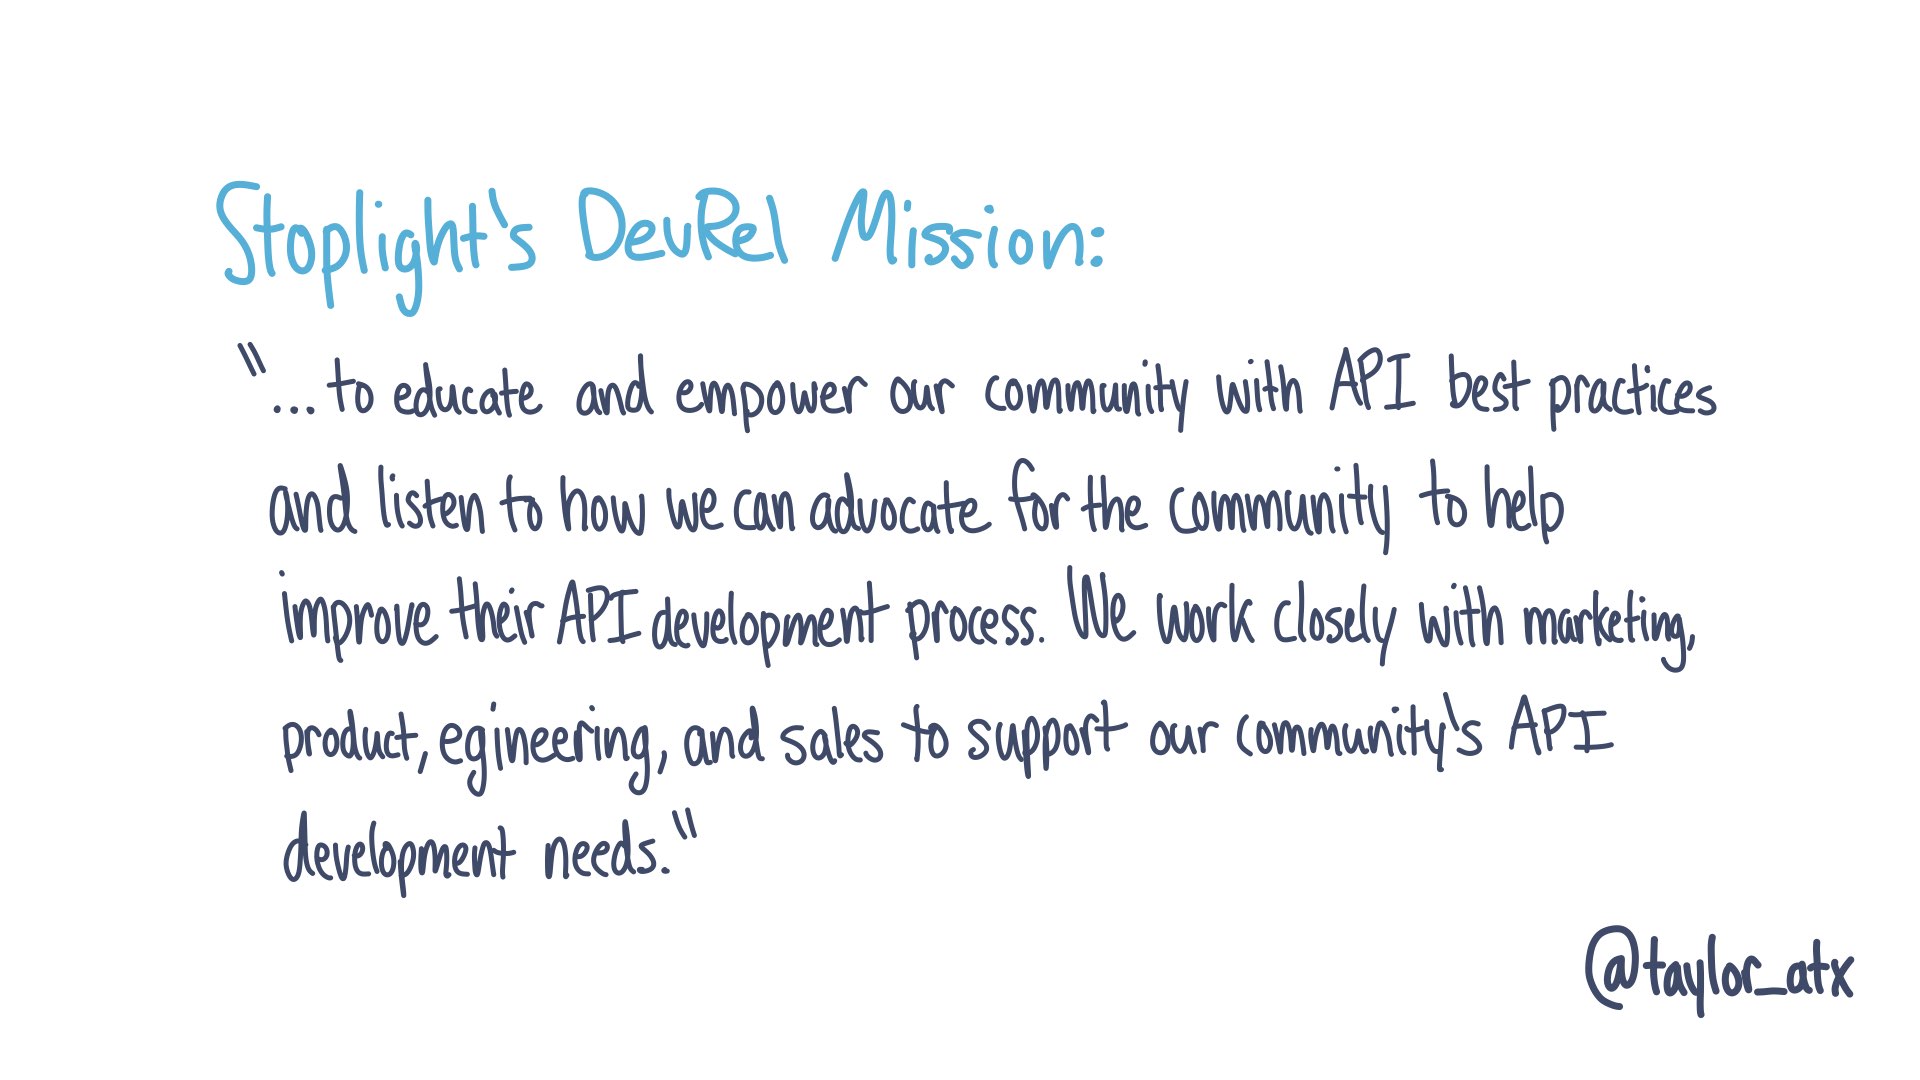 Stoplight's DevRel Mission:
"...to educate and empower our community with API best practices
and listen to how we can advocate for the community to help
improve their API development process. We work closely with marketing,
product, egineering, and sales to support our community's API
development needs."
@taylor_atx